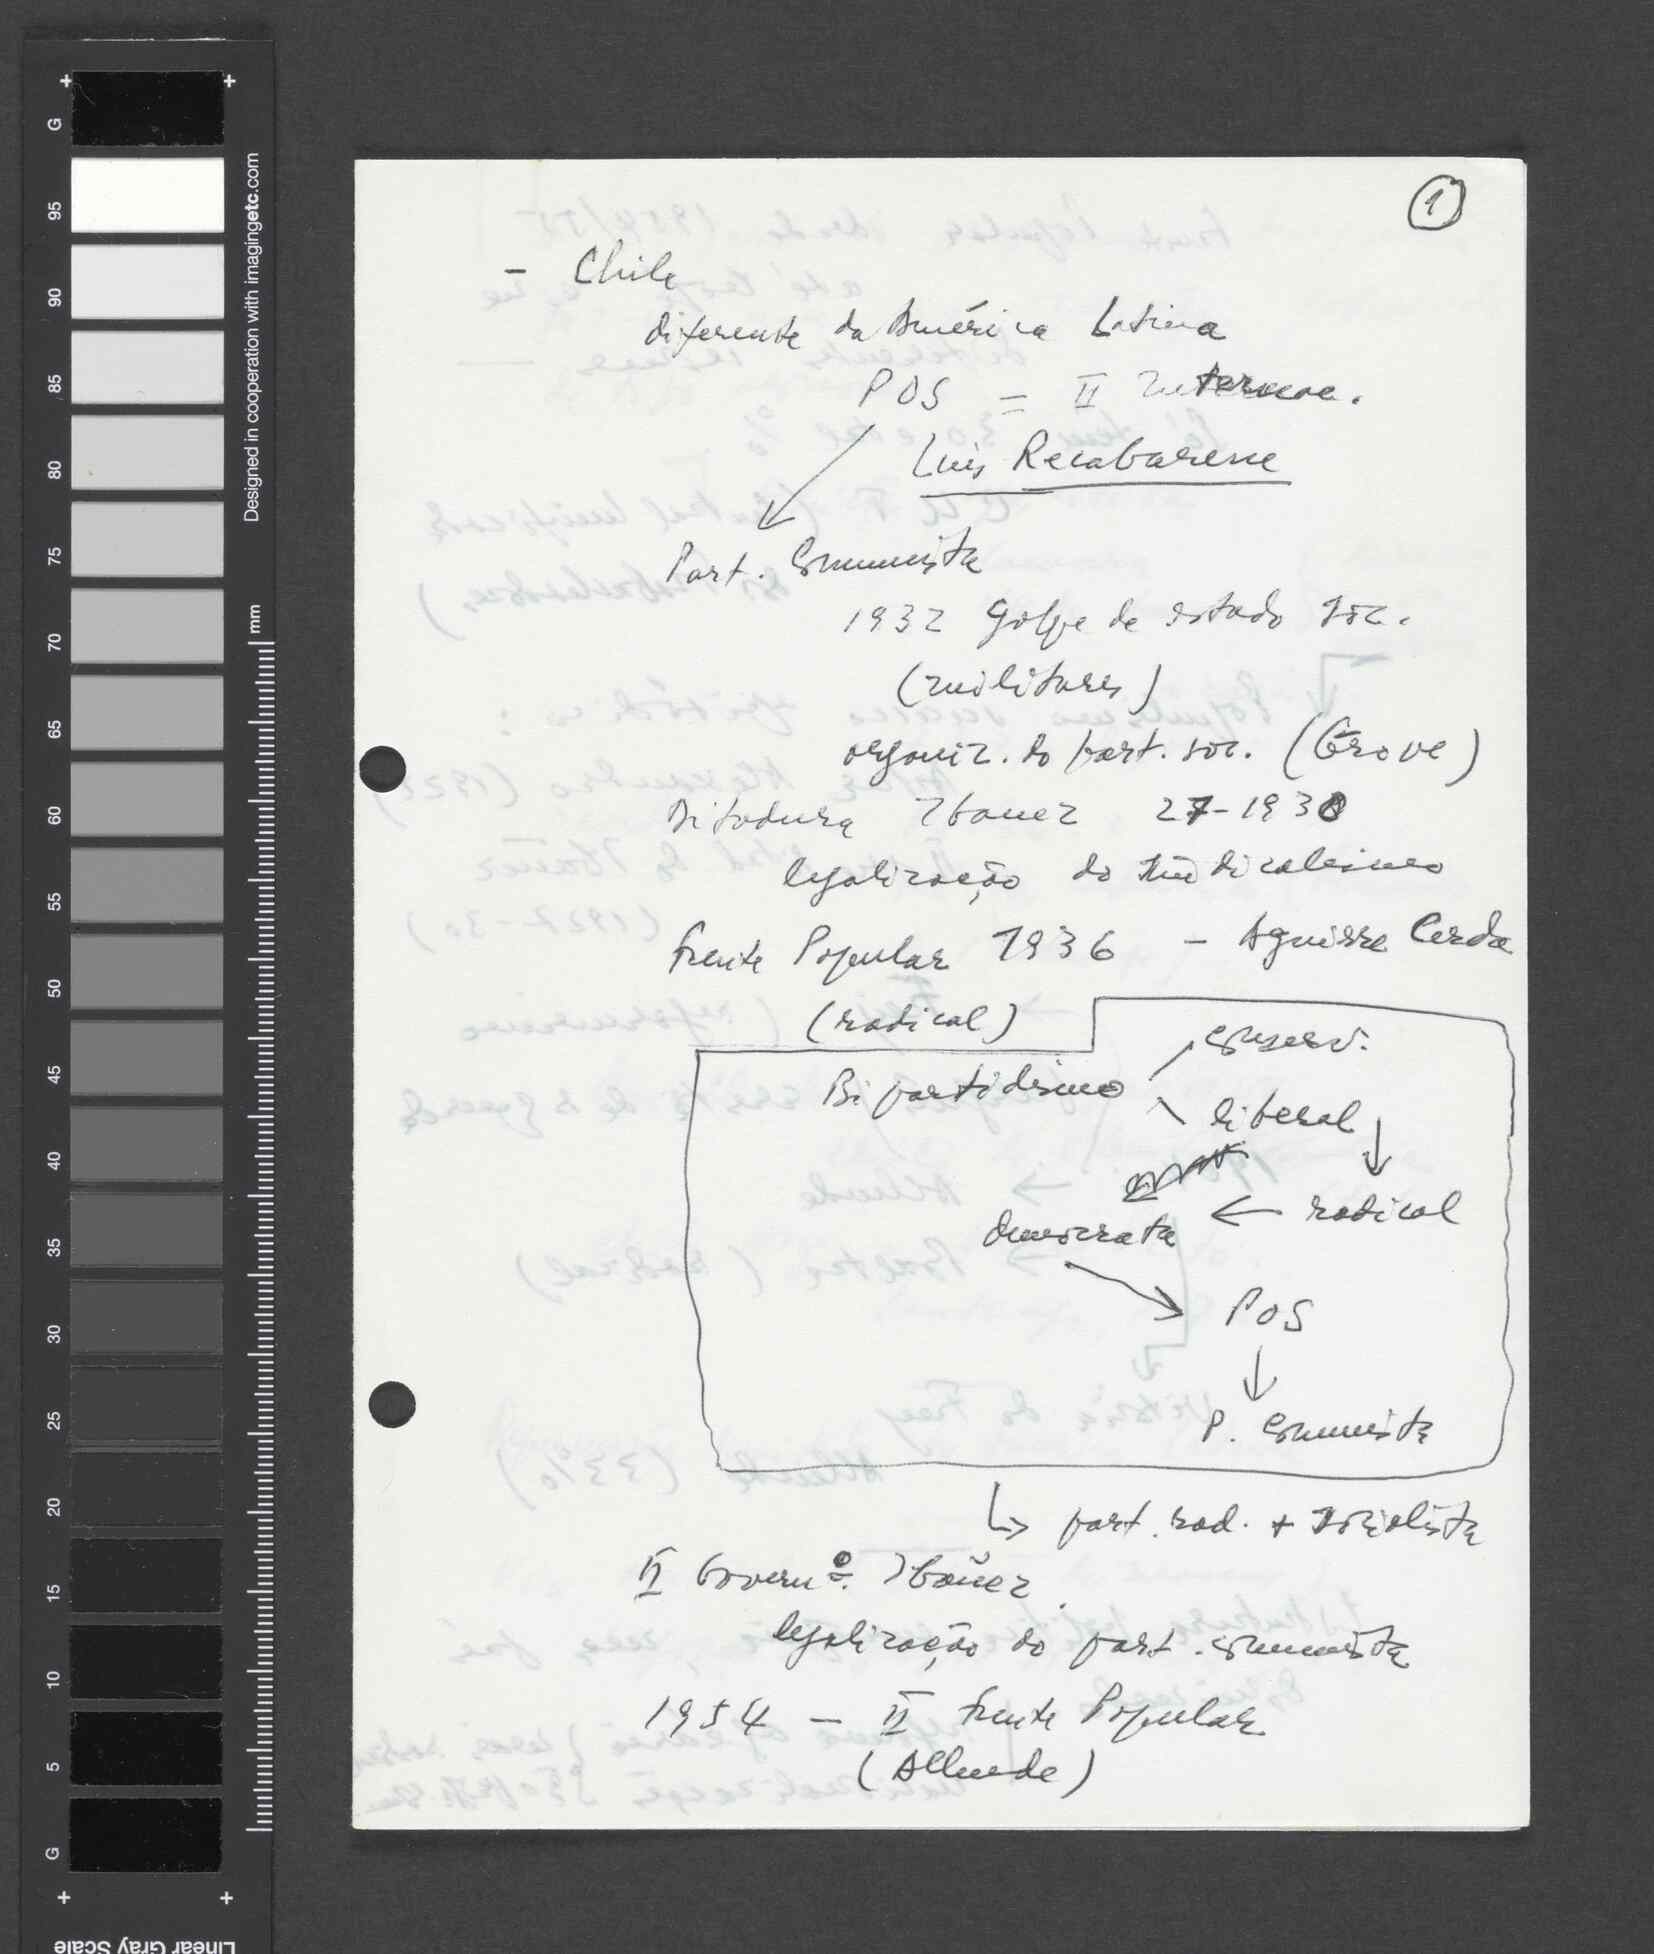 1
- Chile
diferente da América Latina
POS = II Internac.
Luis Recabarene
Part. Comunista
1932 Golpe de estado soc.
(militares)
organiz. do part. soc. (Grove)
Ditadura Ibanez 27-1930
legalização do sindicalismo
Frente Popular 1936 - Aguirre Cerda
(radical)
Bipartidismo
conserv.
liberal
radical
democrata
POS
P. Comunista
part. rad. + socialista
II Governo Ibañez
legalização do part. comunista
1954 - II Frente Popular
(Allende)
G
95
90
85
80
75
70
65
60
55
50
45
40
35
30
25
20
15
10
5
G
Designed in cooperation with imagingetc.com
mm
Linear Gray Scale